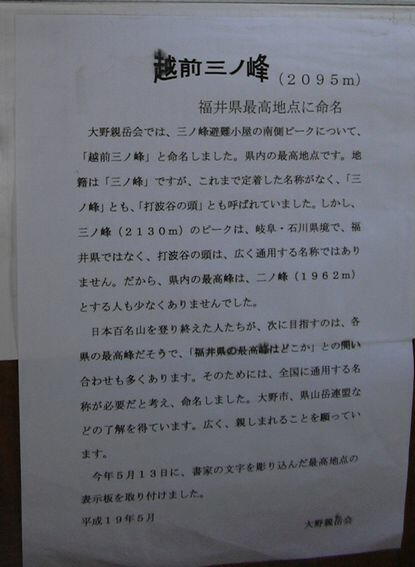 越前三ノ峰（２０９５ｍ）
福井県最高地点に命名
大野親岳会では、三ノ峰避難小屋の南側ピークについて、
「越前三ノ峰」と命名しました。県内の最高地点です。地
籍は「三ノ峰」ですが、これまで定着した名称がなく、「三
ノ峰」とも、「打波谷の頭」とも呼ばれていました。しかし、
三ノ峰（２１３０ｍ）のピークは、岐阜・石川県境で、福
井県ではなく、打波谷の頭は、広く通用する名称ではあり
ません。だから、県内の最高峰は、二ノ峰（１９６２ｍ）
とする人も少なくありませんでした。
日本百名山を登り終えた人たちが、次に目指すのは、各
県の最高峰だそうで、「福井県の最高峰はどこか」との問い
合わせも多くあります。そのためには、全国に通用する名
称が必要だと考え、命名しました。大野市、県山岳連盟な
どの了解を得ています。広く、親しまれることを願ってい
ます。
今年５月１３日に、書家の文字を彫り込んだ最高地点の
表示板を取り付けました。
平成１９年５月
大野親岳会